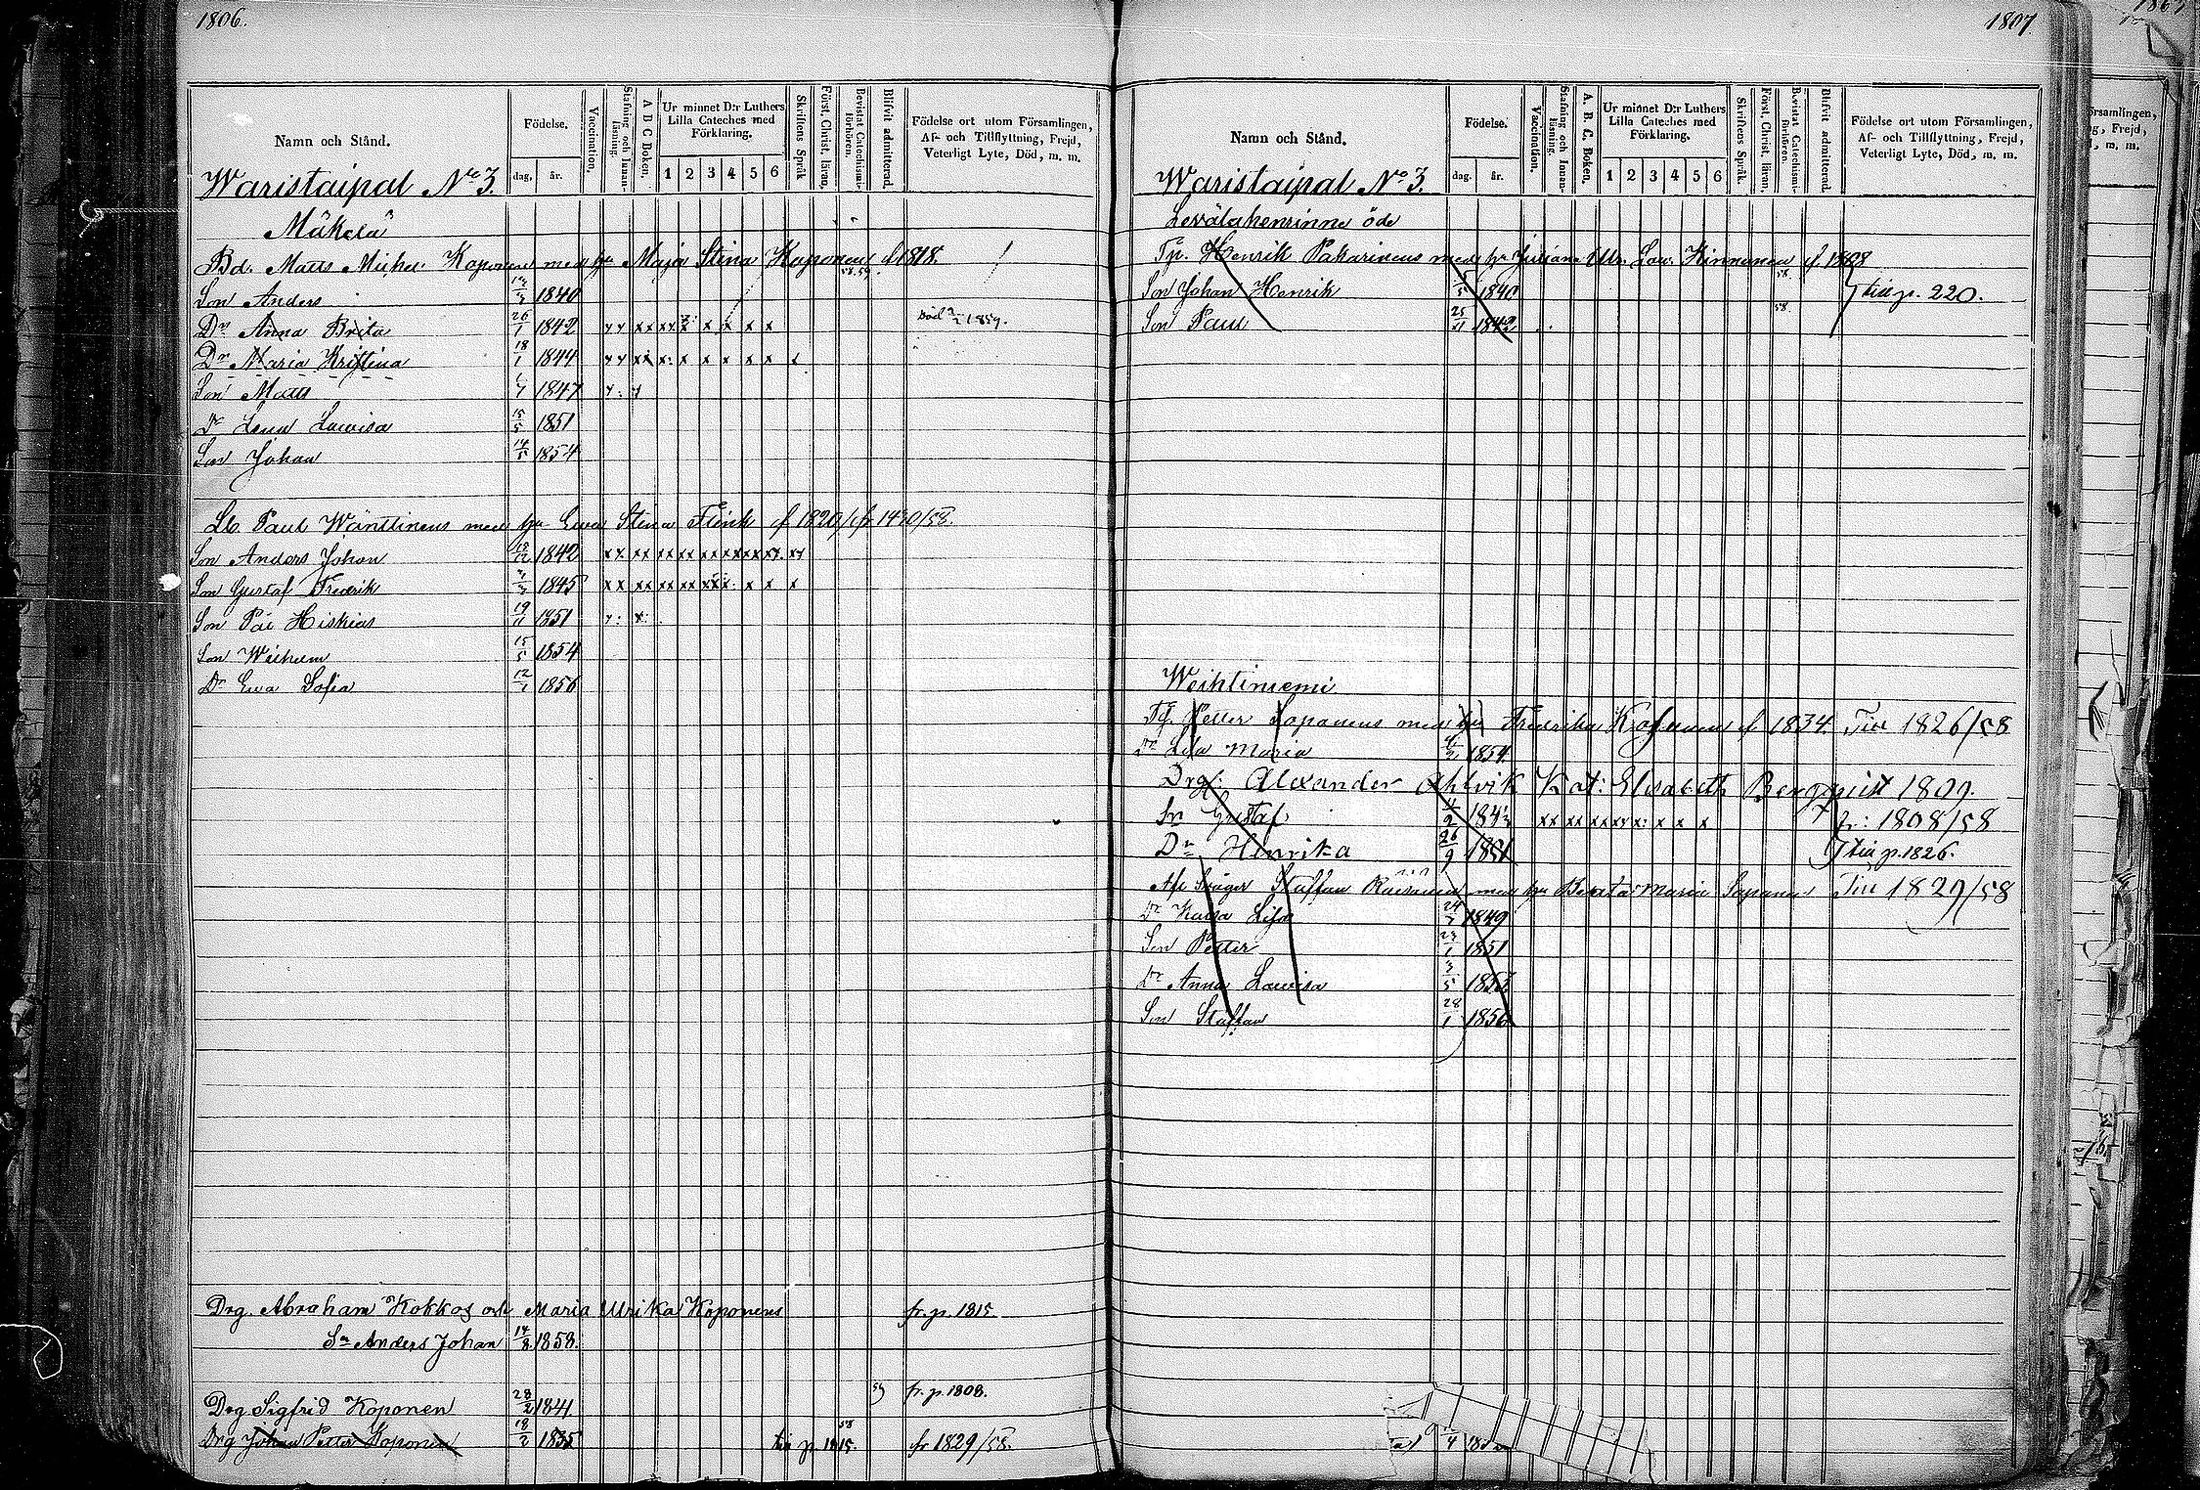 1806.
Namn och Stånd.
Födelse.
dag.
år.
Vaccination.
Stafning och Innanläsning.
A B C Boken.
Ur minnet D:r Luthers Lilla Cateches med Förklaring.
1 2 3 4 5 6
Skriftens Språk
Först. Christ. läran.
Bevistat Catechismiförhören.
Blifvit admitterad.
Födelse ort utom Församlingen, Af- och Tillflyttning, Frejd, Veterligt Lyte, Död, m. m.
Waristaipal No 3.
Mäkelä
Bd. Matts Koponens med hu Maja Stina Koponen f 1818.
58. 59.
Son Anders 1840
Dr Anna Brita 26/1 1842 död 1859.
Dr Maria Kristina 18/1 1844
Son Matts 1847
Dr Lena Lowisa 15/5 1851
Son Johan 14/5 1854
Paul Wänttinens med hu Ewa Stina Flink f 1820
Son Anders Johan 1842
Son Gustaf Fredrik 1845
Son Hiskias 19/11 1851
Son Wilhelm 15/5 1854
Dr Ewa Sofia 12/1 1856
Drg. Abraham Kokkos och Maria Ulrika Koponens fr. p. 1815
Sn Anders Johan 14/8 1858.
59 fr. p. 1808.
Drg Sigfrid Koponen 28/2 1841.
Drg Johan Petter Koponen 18/2 1835 58 till p. 1815. fr 1829/58.
1807
Namn och Stånd.
Födelse.
dag.
år.
Vaccination.
Stafning och Innanläsning.
A. B. C. Boken.
Ur minnet D:r Luthers Lilla Cateches med Förklaring.
1 2 3 4 5 6
Skriftens Språk.
Först. Christ. läran.
Bevistat Catechismiförhören.
Blifvit admitterad.
Födelse ort utom Församlingen, Af- och Tillflyttning, Frejd, Veterligt Lyte, Död, m. m.
Waristaipal No 3.
öde
Henrik Pakarinens med hu Juliana Ulr. Lov. Kinnunen f 1808
Son Johan Henrik 1840 58. till p. 220.
Son Paul 25/11 1842 58.
Weihtiniemi
Petter Sapanens med hu Fredrika f 1834. Till 1826/58
Dr Lisa Maria 1854
Drg: Alexander Ahlvik Kat: Elisabeth Bergqvist 1809.
Sn Gustaf 1843 fr: 1808/58
Dr Henrika 26/9 1851 till p. 1826.
Staffan Räisänen med hu Beata Maria Sapanen Till 1829/58
Dr Kaisa Lisa 1849
Son Petter 23/1 1851
Dr Anna Lowisa 3/5 1853
Son Staffan 28/1 1856